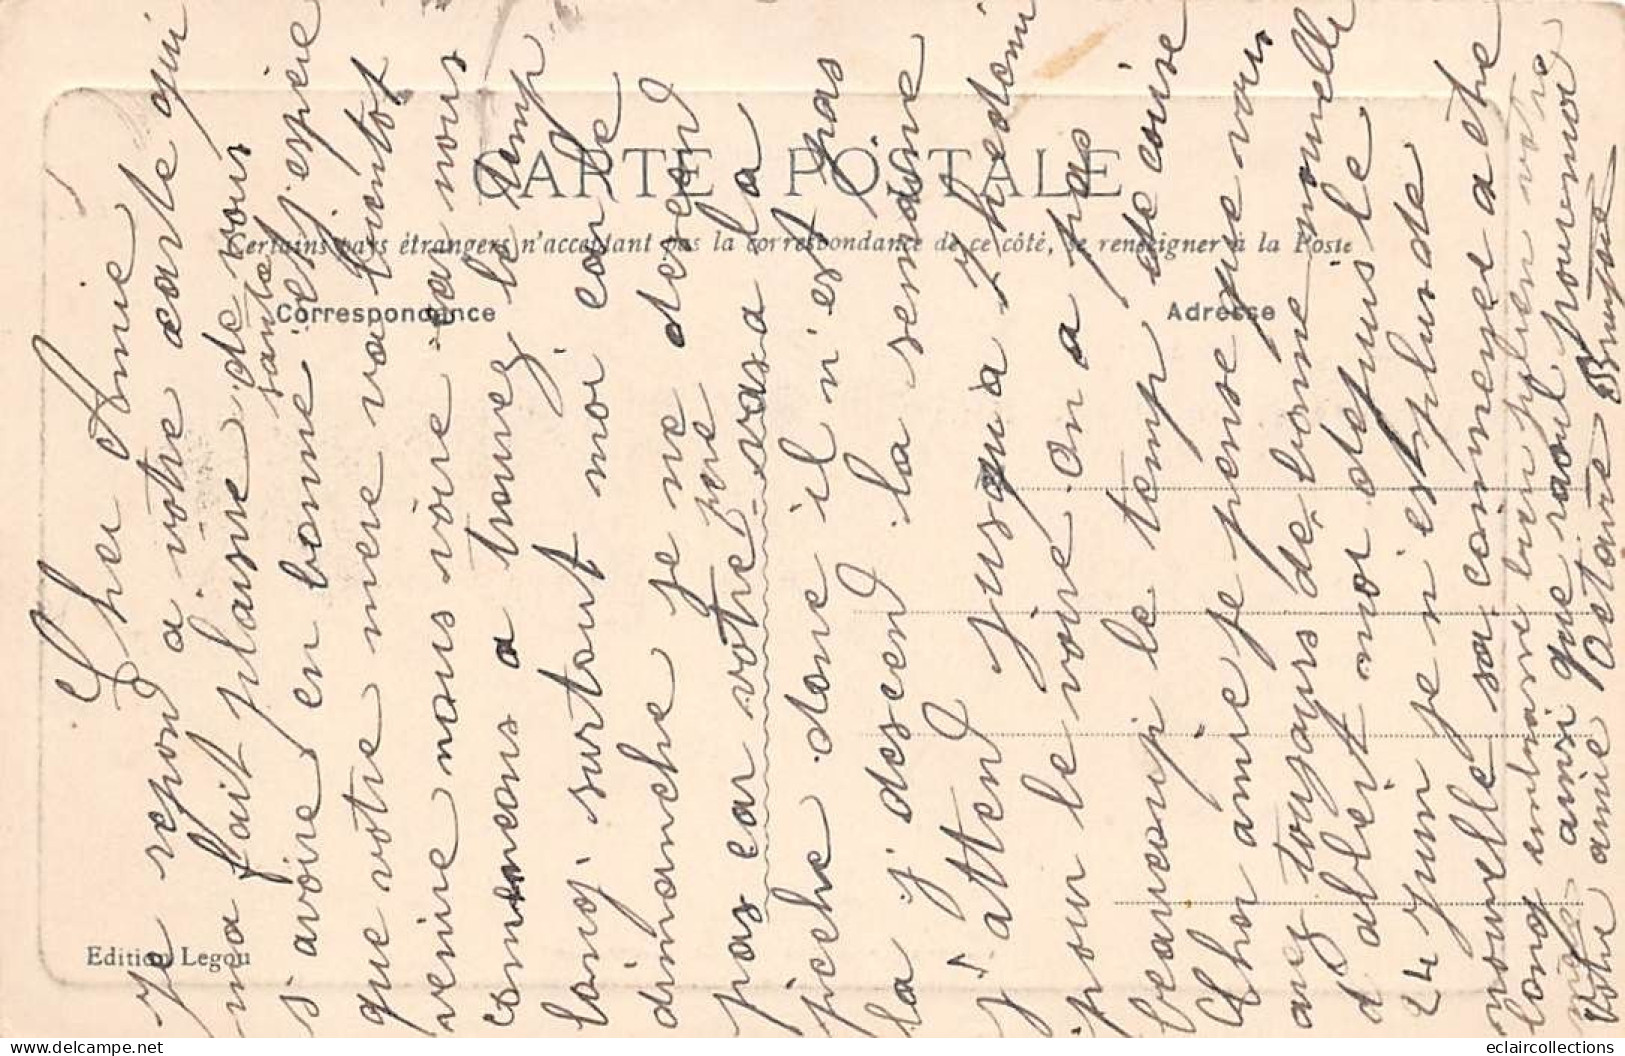 CARTE POSTALE
Certains pays étrangers n'acceptant pas la correspondance de ce côté, se renseigner à la Poste
Correspondance
Adresse
Edition Legou
Cher Amie
je repond à votre carte qui
ma fait plaisire de vour
santé
s'avoire en bonne et j'espère
que votre mere va bientot
venire nous voire car nous
commencons a trouvez le temp
long surtout moi car le
dimanche je ne descend
pas car votre père vas a la
pieche donc il n'est pas
la j'descend la semaine
j'attend jusqua
pour le voire on a pas
beaucoup le temp de couse
Cher amie je pense que vous
avez tougours de bonne nouvelle
d'albert moi depuis le
24 juin je n'est plus de
nouvelle sa commense a etre
long embrasse bien bien votre
mère ainsi que raoul pour moi
votre amie Octavie
eclaircollections